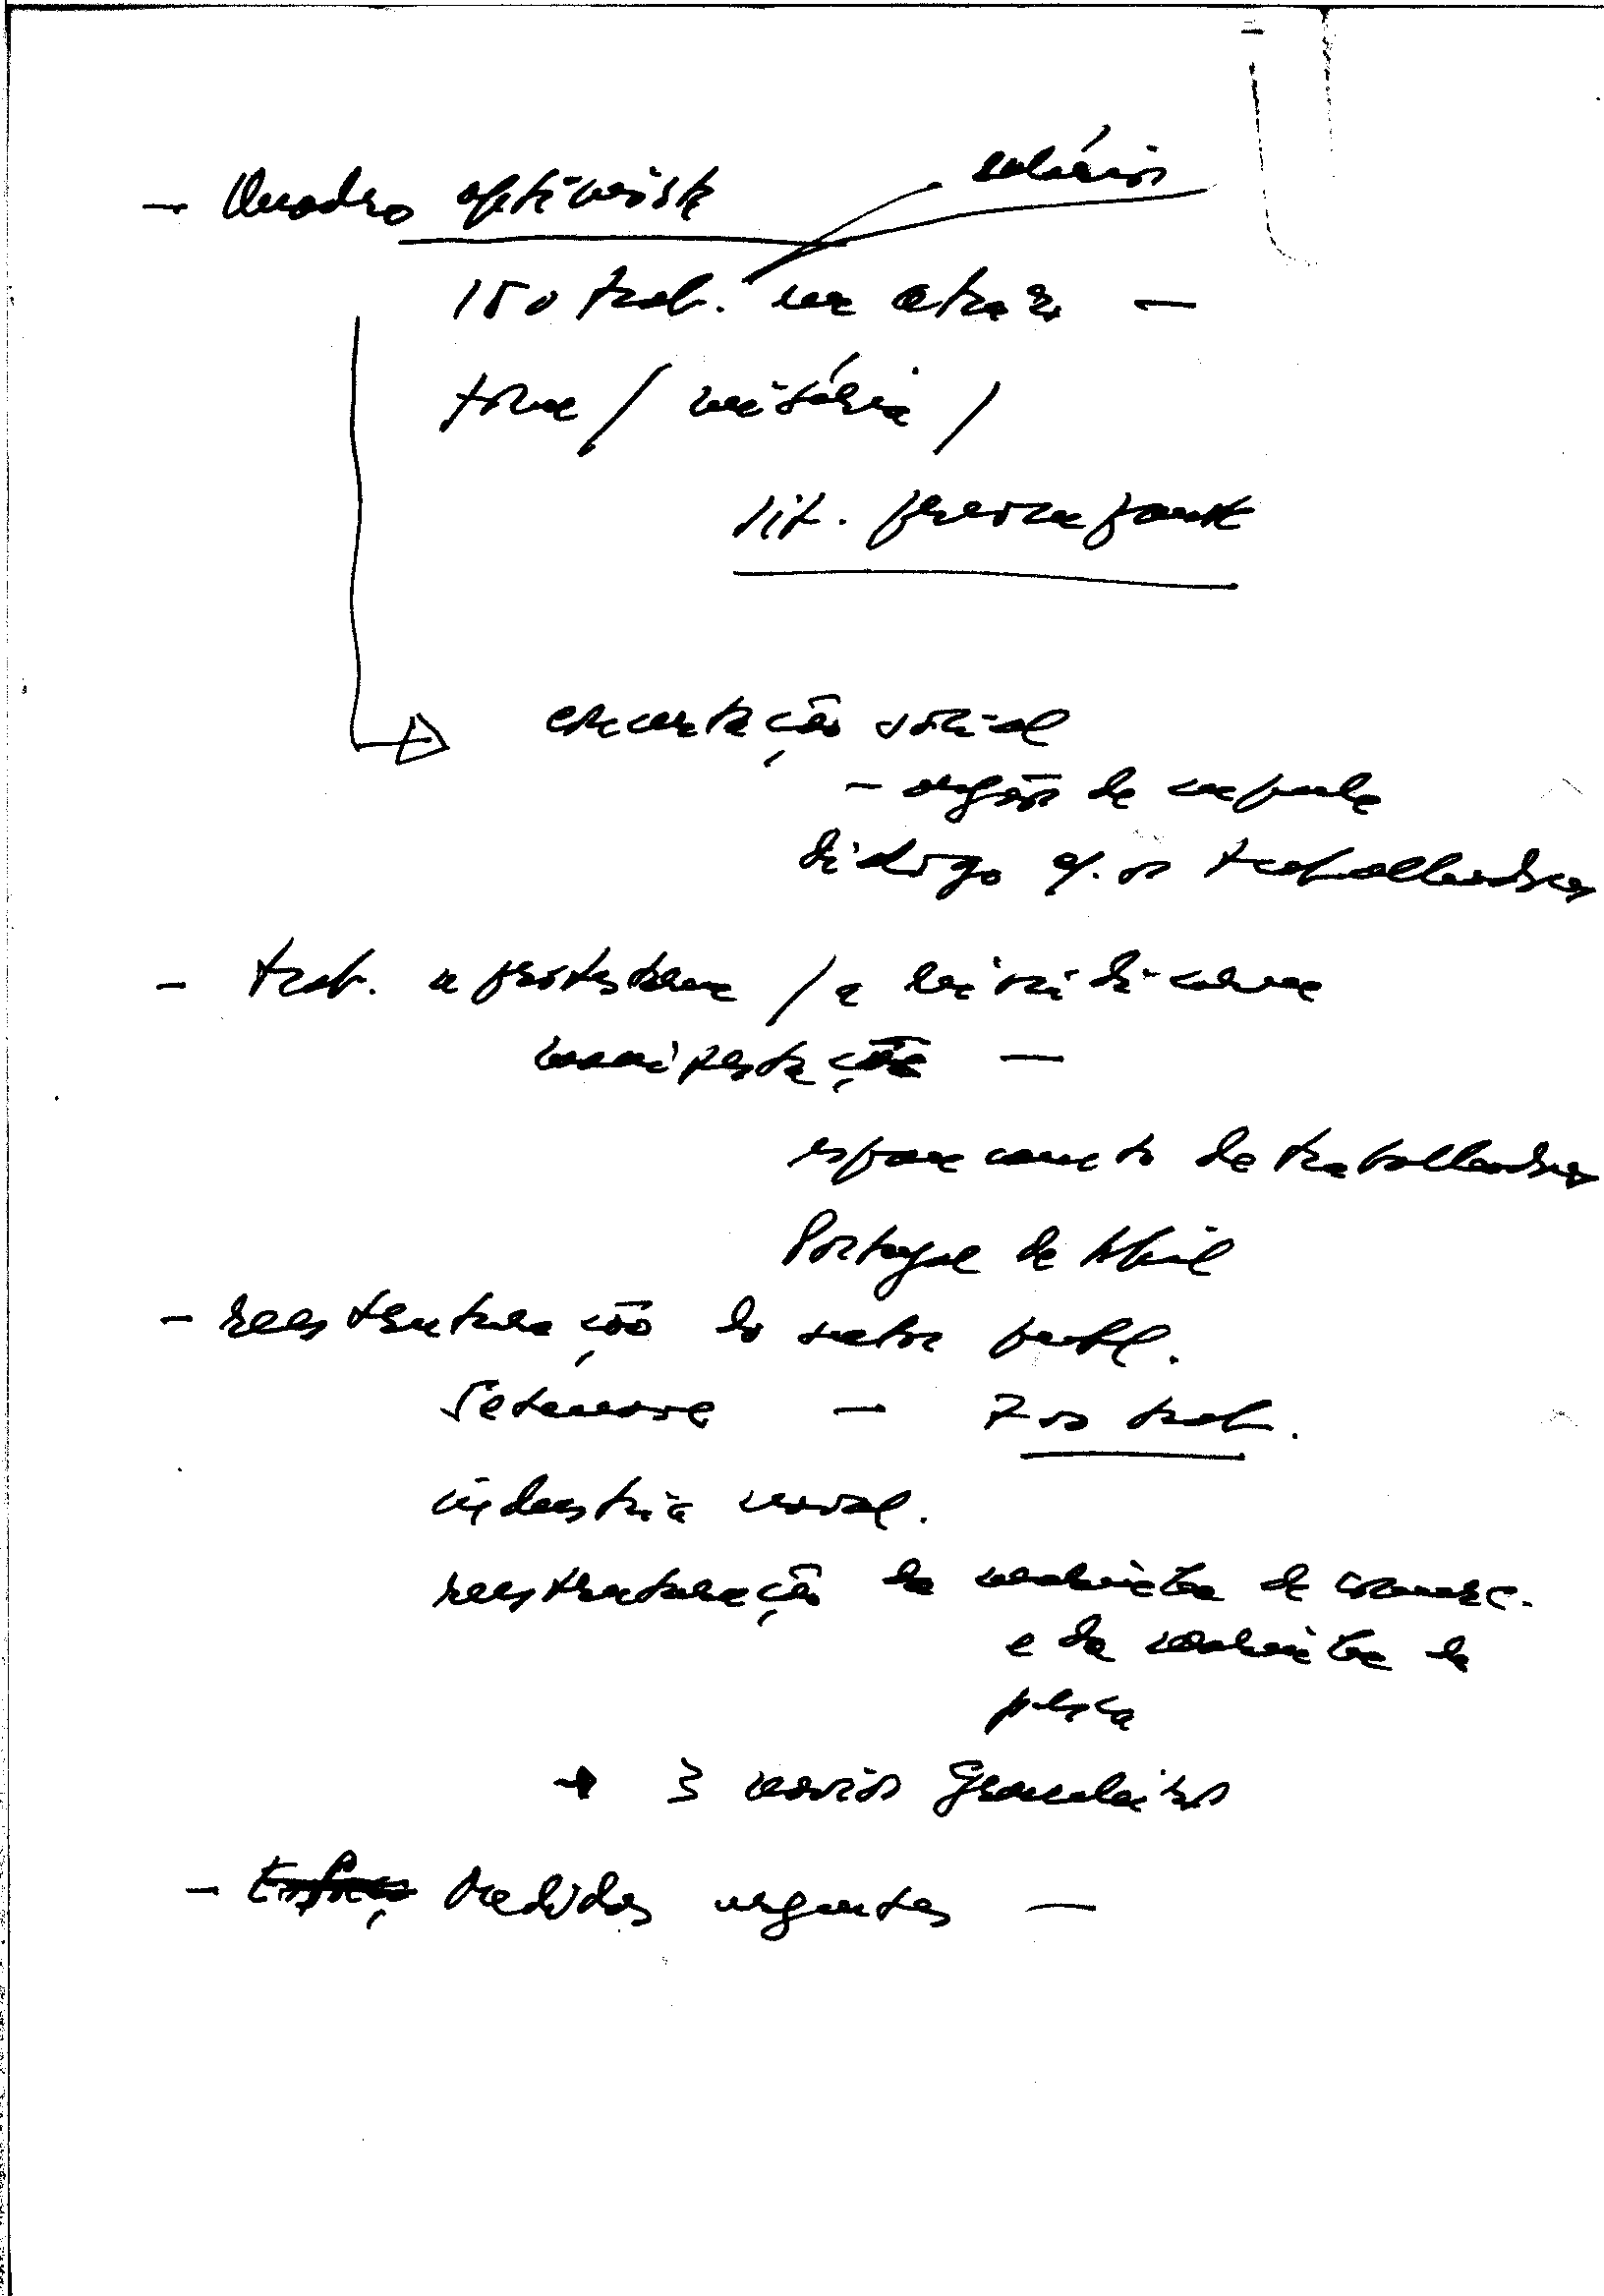 - Quadro optimista
salários
150 trab. em atraz -
fome / miséria /
sit. preocupante
concertação social
- orgãos de cupula
diálogo c/. os trabalhadores
- trab. a protestarem / a reivindicarem
manifestações -
espancamento de trabalhadores
Portugal de Abril
- reestruturação do sector publ.
Setenave - 7 000 trab.
industria naval.
reestruturação da marinha de comerc.
e da marinha de
pesca
→ 3 navios graneleiros
- Medidas urgentes -